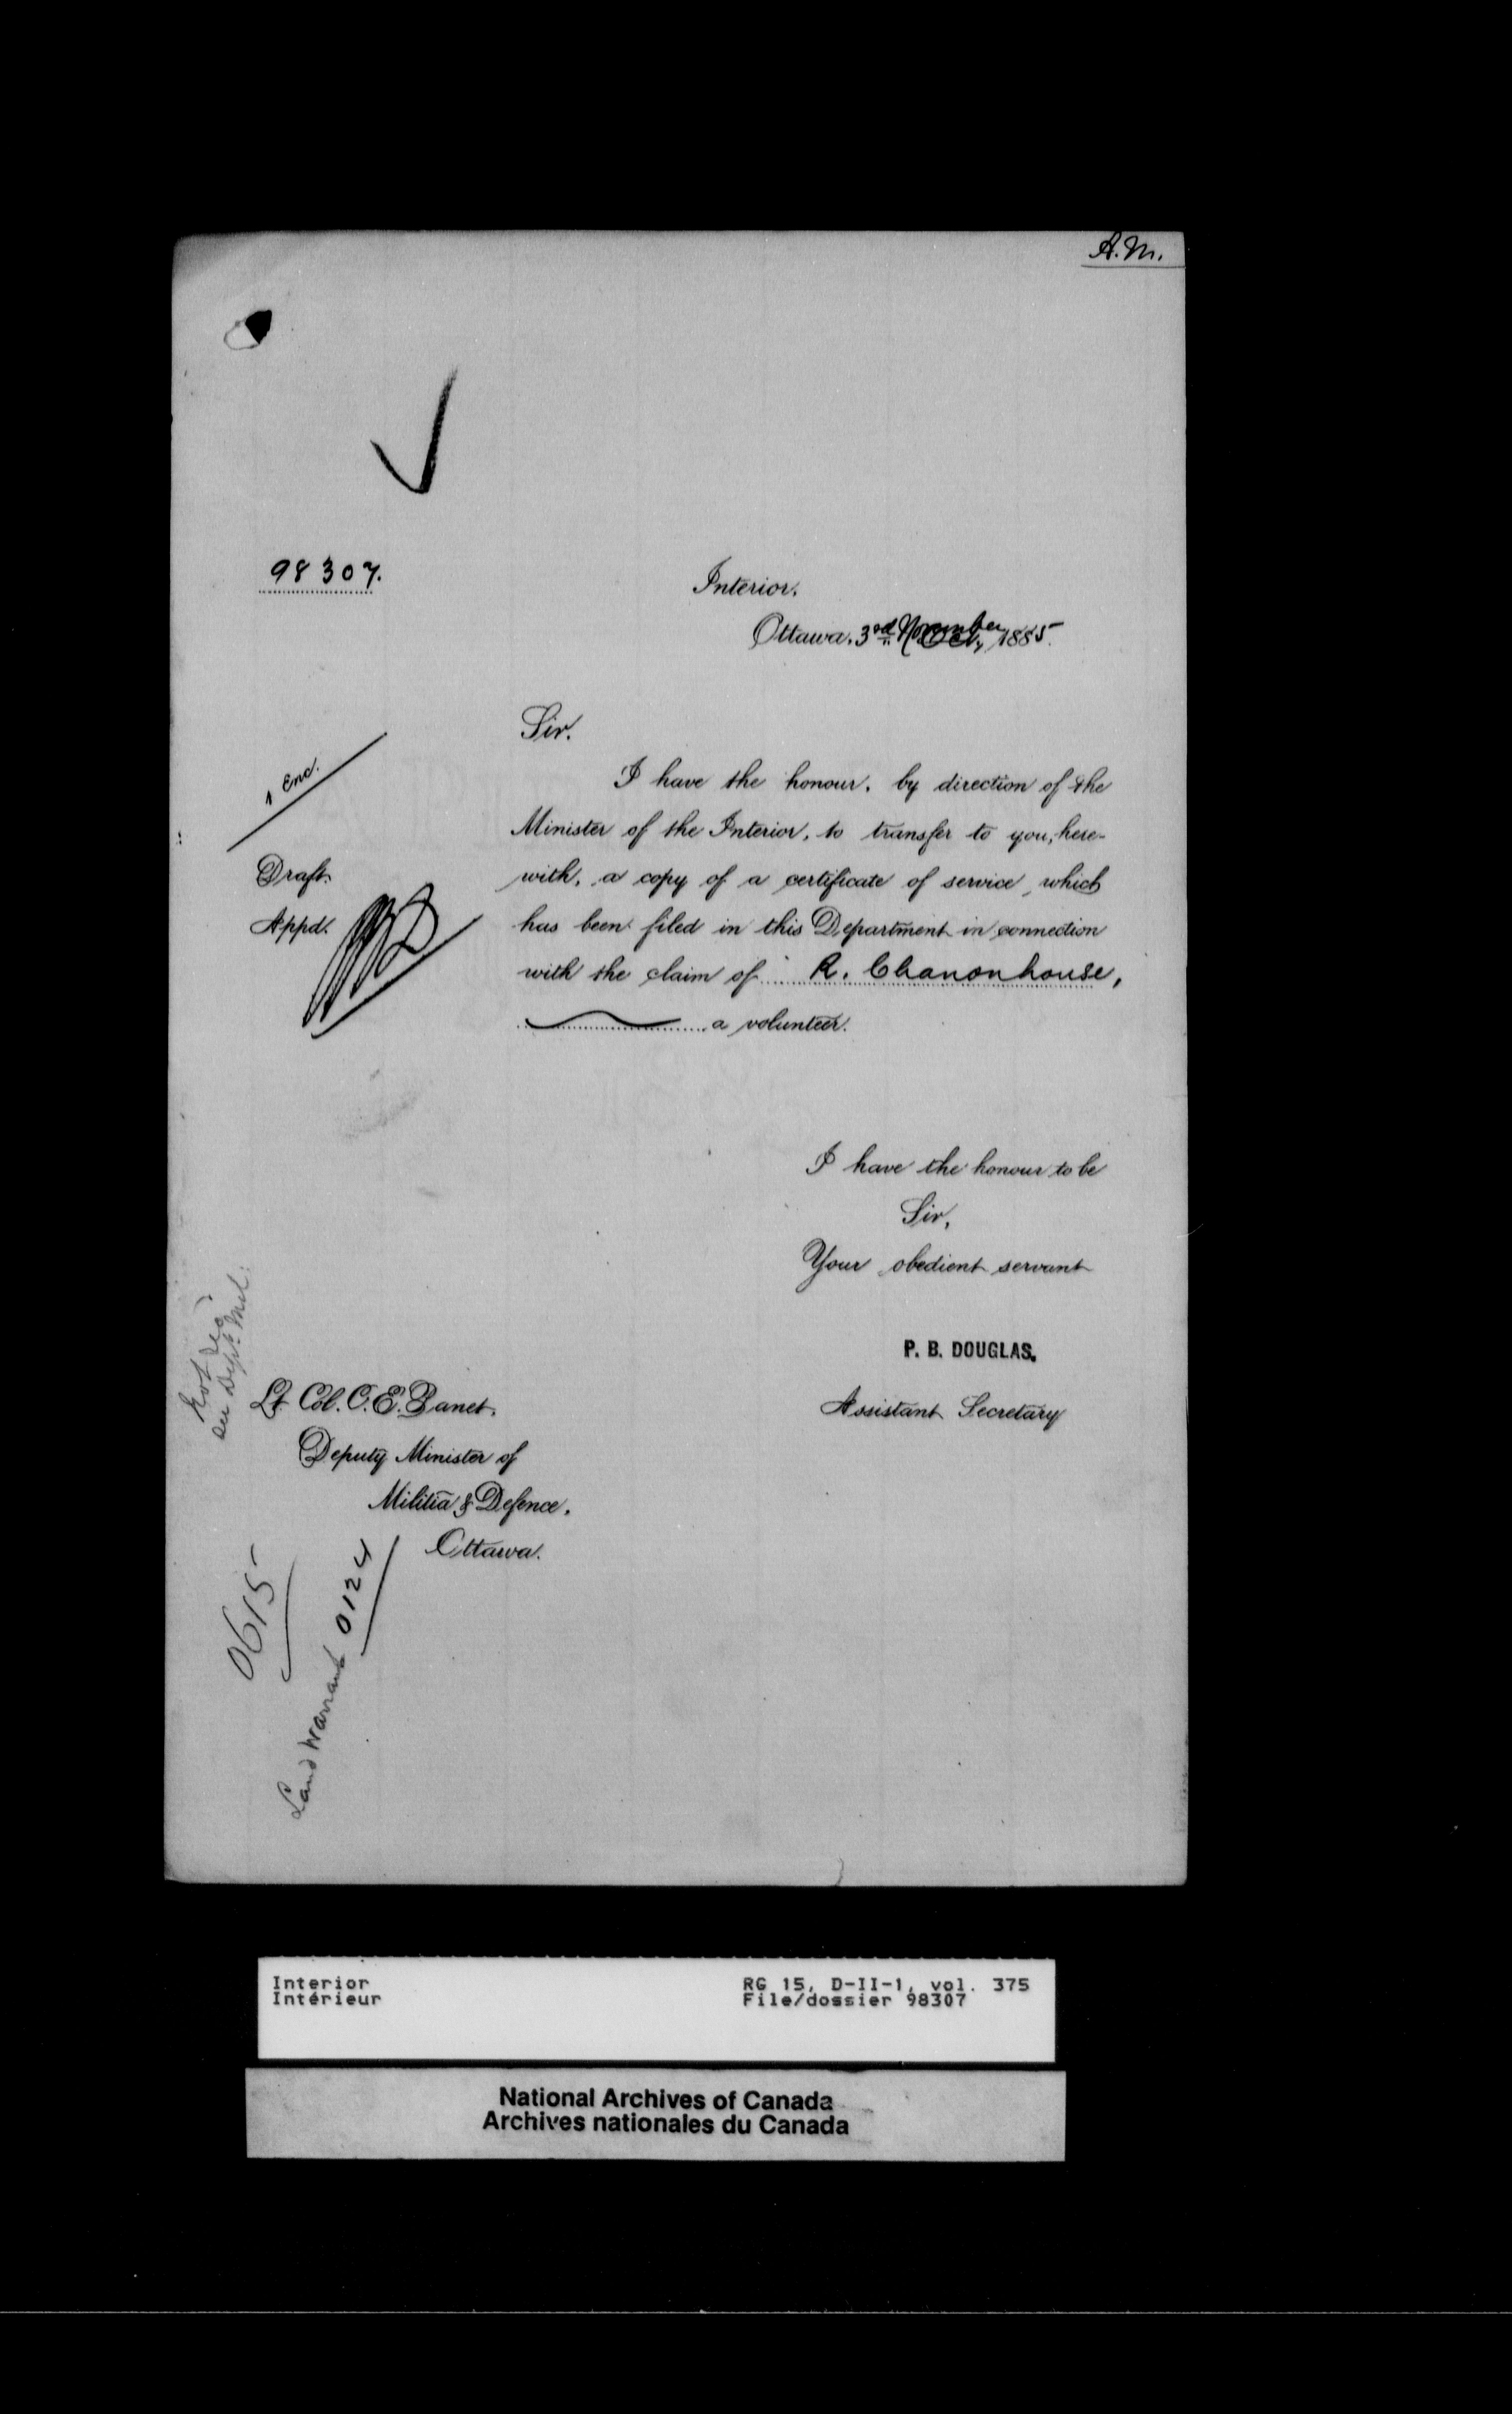 A.M.
98307.
Interior.
Ottawa. 3rd November Oct. 1885.
Sir.
1 Enc.
I have the honour, by direction of the
Minister of the Interior, to transfer to you, here-
with, a copy of a certificate of service, which
has been filed in this Department in connection
with the claim of R. Chanonhouse,
a volunteer.
Draft.
Appd.
I have the honour to be
Sir,
Your obedient servant
P. B. DOUGLAS.
Assistant Secretary
see Dept. Mil.
Lt. Col. C. E. Panet.
Deputy Minister of
Militia & Defence.
Ottawa.
0615
Land Warrant 0124
Interior
Intérieur
RG 15, D-II-1, vol. 375
File/dossier 98307
National Archives of Canada
Archives nationales du Canada